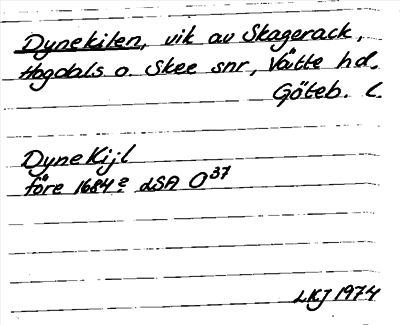 Dynekilen, vik av Skagerack,
Hogdals o. Skee snr, Vätte hd.
Göteb. L.
Dyne Kijl
före 1684 e LSA O 37
LKJ 1974